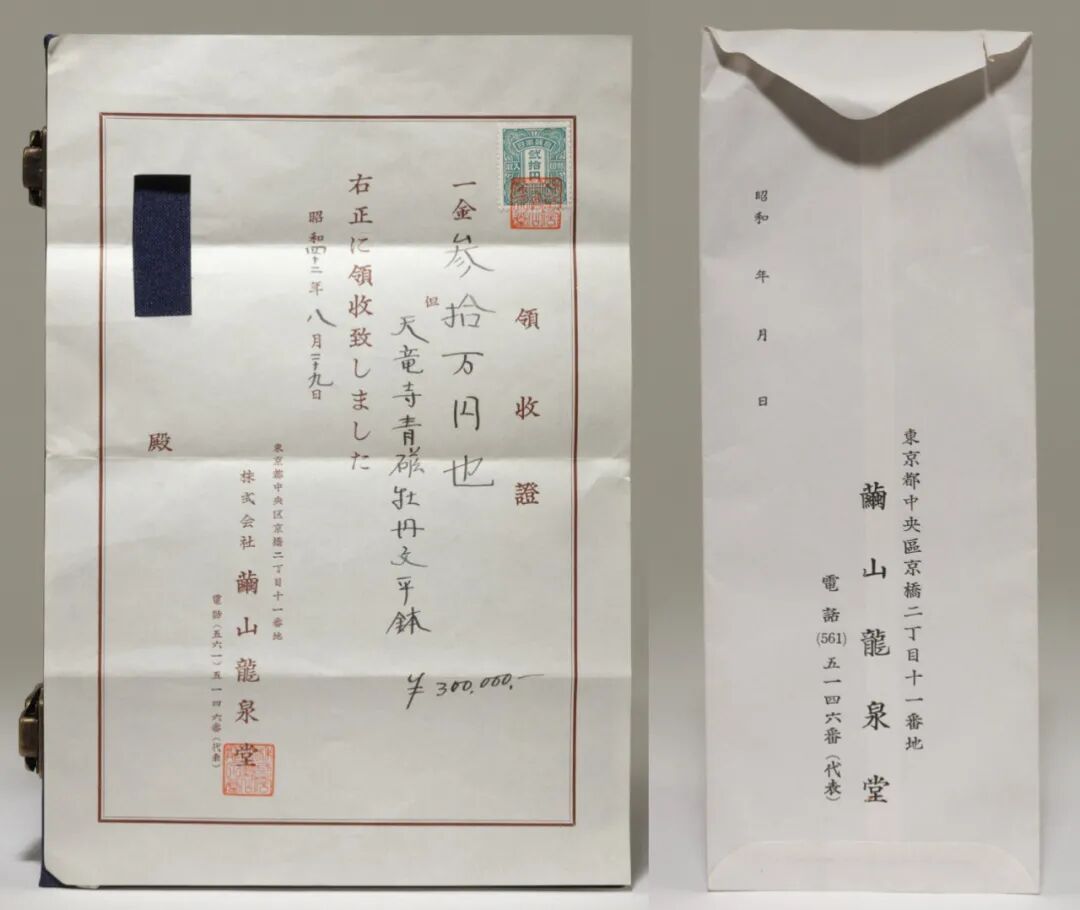 領收證
貳拾円
一金参拾万円也
但
天竜寺青磁牡丹文平鉢
¥300,000.-
右正に領收致しました
昭和四十二年八月二十九日
東京都中央区京橋二丁目十一番地
株式会社 繭山龍泉堂
電話(五六一)五一四六番(代表)
殿
東京都中央區京橋二丁目十一番地
繭山龍泉堂
電話(561)五一四六番(代表)
昭和 年 月 日